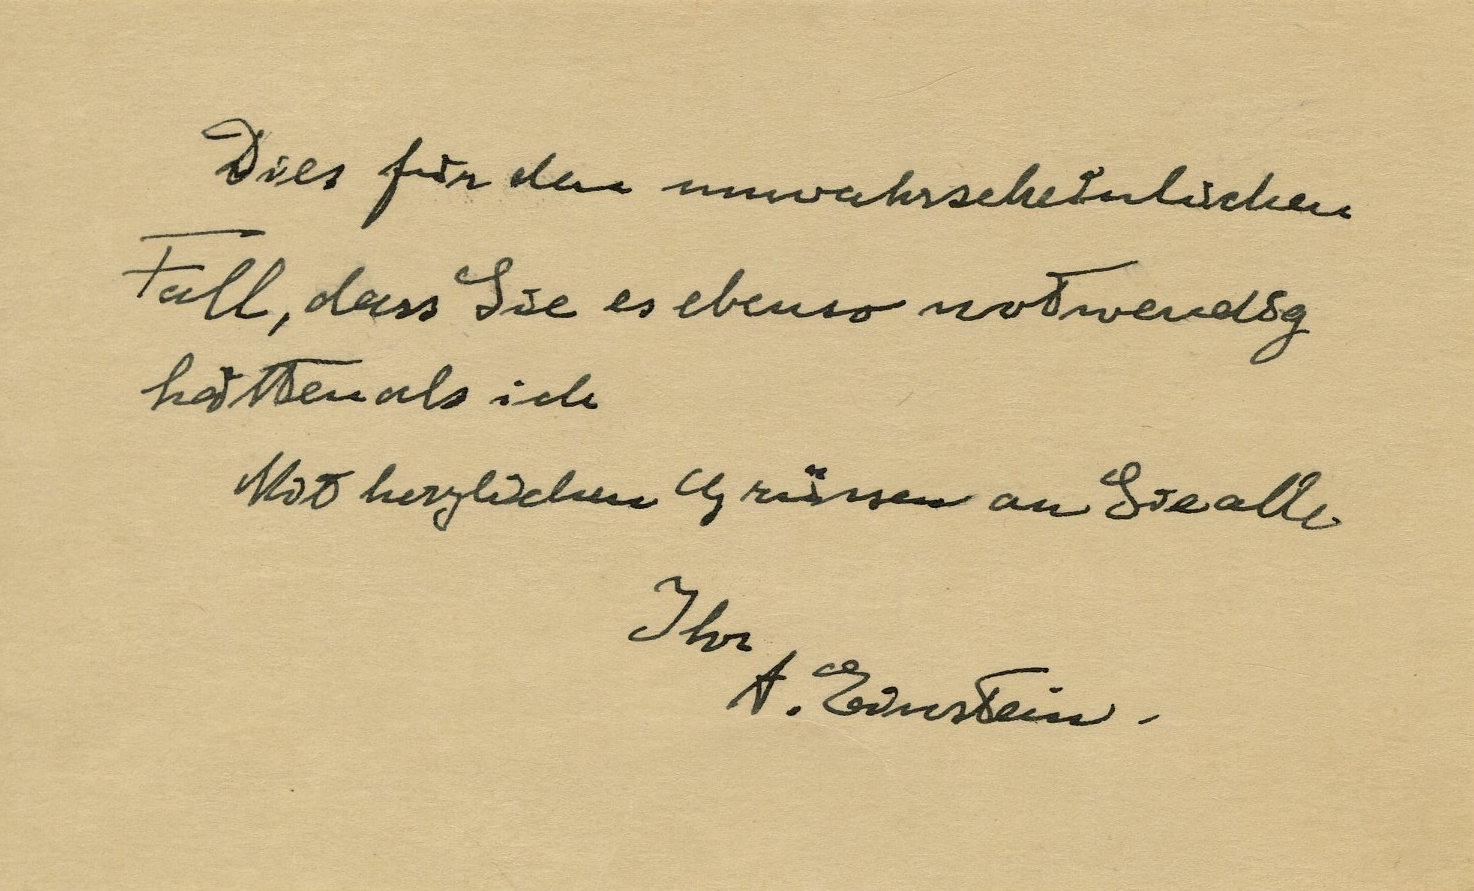 Dies für den unwahrscheinlichen
Fall, dass Sie es ebenso notwendig
hätten als ich
Mit herzlichen Grüssen an Sie alle
Ihr
A. Einstein.